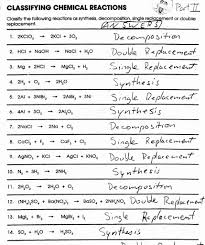 CLASSIFYING CHEMICAL REACTIONS Part II
Classify the following reactions as synthesis, decomposition, single replacement or double
replacement. (ANSWERS)
1. 2KClO₃ → 2KCl + 3O₂ Decomposition
2. HCl + NaOH → NaCl + H₂O Double Replacement
3. Mg + 2HCl → MgCl₂ + H₂ Single Replacement
4. 2H₂ + O₂ → 2H₂O Synthesis
5. 2Al + 3 → 3Ni + Single Replacement
6. 4Al + 3O₂ → 2Al₂O₃ Synthesis
7. 2NaCl → 2Na + Cl₂ Decomposition
8. CaCl₂ + F₂ → CaF₂ + Cl₂ Single Replacement
9. AgNO₃ + KCl → AgCl + KNO₃ Double Replacement
10. N₂ + 3H₂ → 2NH₃ Synthesis
11. 2H₂O₂ → 2H₂O + O₂ Decomposition
12. (NH₄)₂SO₄ + → + Double Replacement
13. MgI₂ + Br₂ → MgBr₂ + I₂ Single Replacement
14. SO₃ + H₂O → H₂SO₄ Synthesis